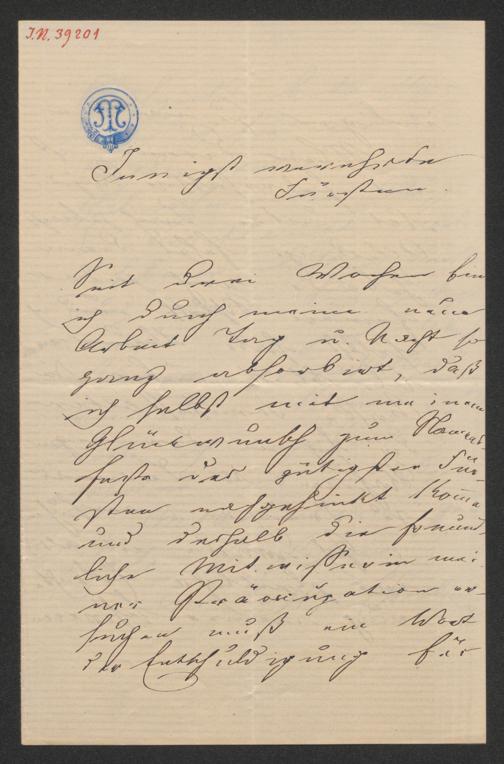 J.N. 39201
Innigst verehrte
Fürstin
Seit drei Wochen bin
ich durch meine neue
Arbeit Tag u. Nacht so
ganz absorbirt, daß
ich selbst mit meinem
Glückwunsch zum Namens-
feste der gütigsten Für-
stin nachgehinkt komme
und deshalb die freund-
liche Mitwisserin mei-
ner Präoccupation er-
suchen muß ein Wort
der Entschuldigung für